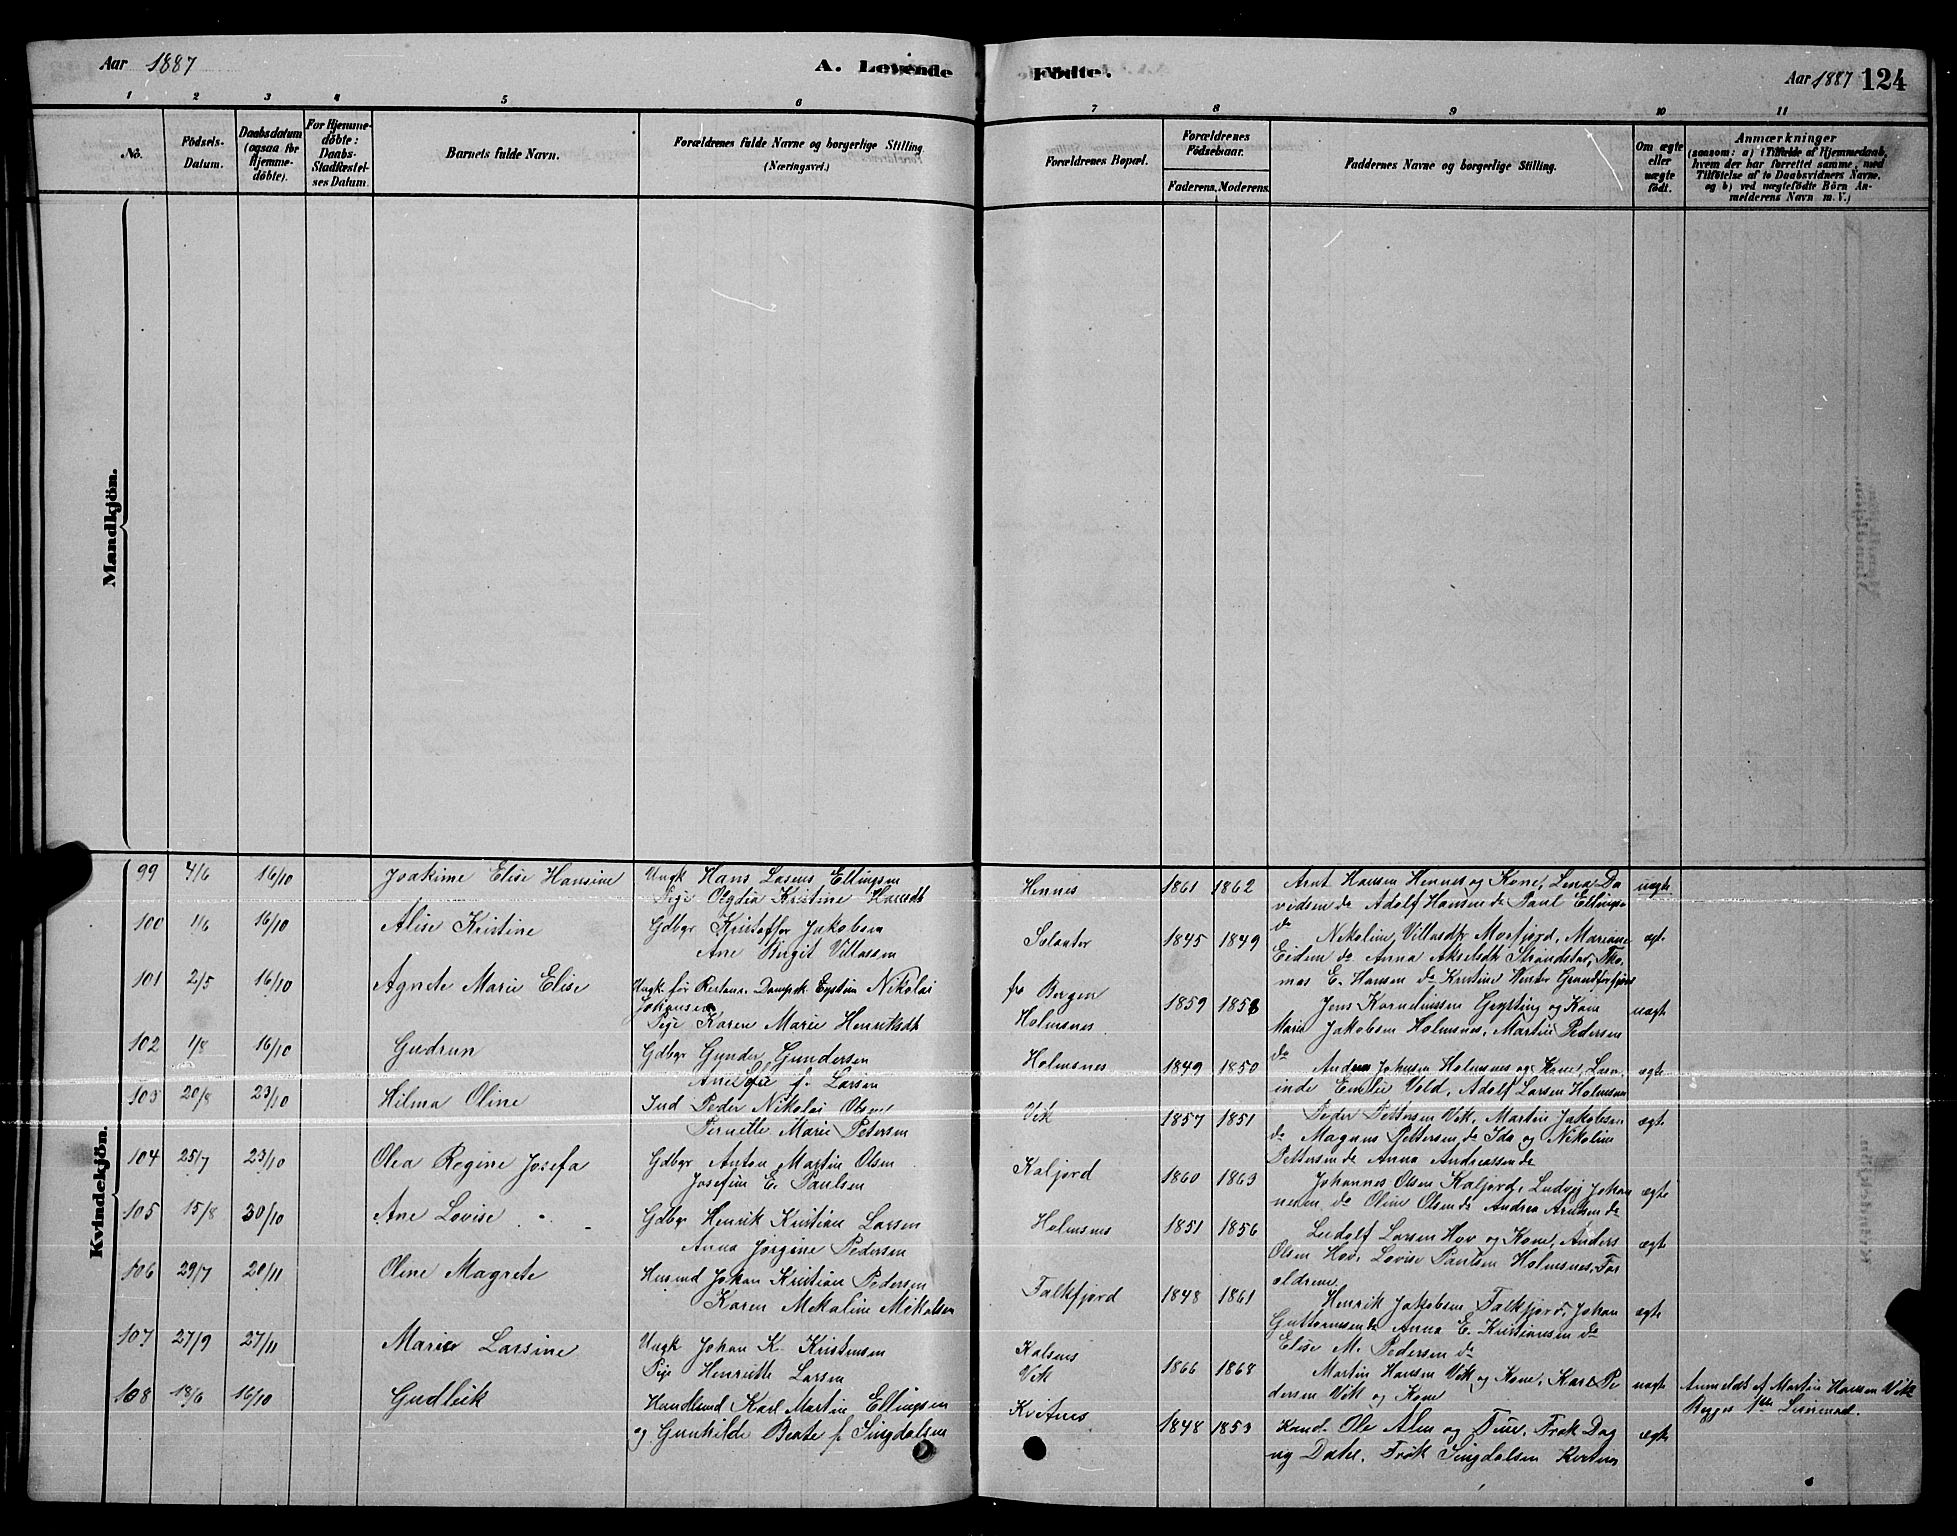 Aar 1887
A. Levende
Födte.
Aar 1887 124
1 2 3 4 5 6 7 8 9 10 11
No.
Födsels-
Datum.
Daabsdatum
(ogsaa for
Hjemme-
döbte).
For Hjemme-
döbte:
Daabs-
Stadfæstel-
ses Datum.
Barnets fulde Navn.
Forældrenes fulde Navne og borgerlige Stilling
(Næringsvei.)
Forældrenes Bopæl.
Forældrenes
Födselsaar.
Faderens. Moderens.
Faddernes Navne og borgerlige Stilling.
Om ægte
eller
uægte
födt.
Anmærkninger
(saasom: a) i Tilfælde af Hjemmedaab,
hvem der har forrettet samme, med
Tilföielse af to Daabsvidners Navne,
og b) ved uægtefödte Börn An-
melderens Navn m. V.)
Mandkjön.
Kvindekjön.
99 4/6 16/10 Joakime Elise Hansine Ungk Hans Ellingsen Hennes 1861 1862 Arnt Hansen Hennes og Kone, Lena Da uægte
Pige Kristine Hansdt vidsen do Adolf Hansen do Paul Ellingsen
100 1/6 16/10 Alise Kristine Gdbgr Kristoffer Jakobsen do
Ane Birgit Villassen 1845 1849 Nikoline Villasdtr Morfjord, Mariane ægte
Eidem do Anna Strandstad, Tho
101 2/5 16/10 Agnete Marie Elise Ungk før Nikolai fr Bergen mas E. Hansen do Kristine
Johansen 1859 Jens Kornelinssen og Kone uægte
Pige Karen Marie Henriksdt Holmsnes Marie Jakobsen Holmsnes, Martin Pedersen
102 1/8 16/10 Gudrun Gdbgr Gunder Gundersen Holmsnes do
Ane f. Larsen 1849 1850 Johnsen Holmsnes og Kone, ægte
103 20/8 23/10 Hilma Oline Ind Peder Nikolai Olsen Vik Emilie Vold, Adolf Larsen Holmsnes
Pernette Marie Petersen 1857 1851 Peder Pettersen Vik, Martin Jakobsen ægte
do Magnus Pettersen do Ida og Nikoline
104 25/7 23/10 Olea Regine Josefa Gdbgr Anton Martin Olsen Kaljord Pettersen do Anna Andreassen do
Josefine E. Paulsen 1860 1863 Johannes Olsen Kaljord, Ludvig Johan ægte
105 15/8 30/10 Ane Lovise Gdbgr Henrik Kristian Larsen Holmsnes nesen do Oline Olsen do Andrea do
Anna Jørgine Pedersen 1851 1856 Ludolf Larsen Hov og Kone, Anders ægte
Olsen Hov, Lovise Paulsen Holmsnes, For
106 29/7 20/11 Oline Magrete Husmd Johan Kristian Pedersen Falkfjord ældrene
Karen Mekaline Mikalsen 1848 1861 Henrik Jakobsen Falkfjord, Johan ægte
Guttormsen do Anna E. Kristiansen do
107 27/9 27/11 Marie Larsine Ungk Johan K. Kristensen Kalsnes Elise M. Pedersen do
Pige Henriette Larsen Vik 1866 1868 Martin Hansen Vik og Kone, Pe uægte Anmeldt af Martin Hansen Vik
108 18/6 16/10 Gudleik Handlsmd Karl Martin Ellingsen Kvitnes dersen Vik og Kone Begges 1ste
og Gunhilde Beate f. Singdalsen 1848 1853 Kand. Ole Alm og Frue, Frøk Dag ægte
ny Dahl, Frøk Singdalsen Kvitnes